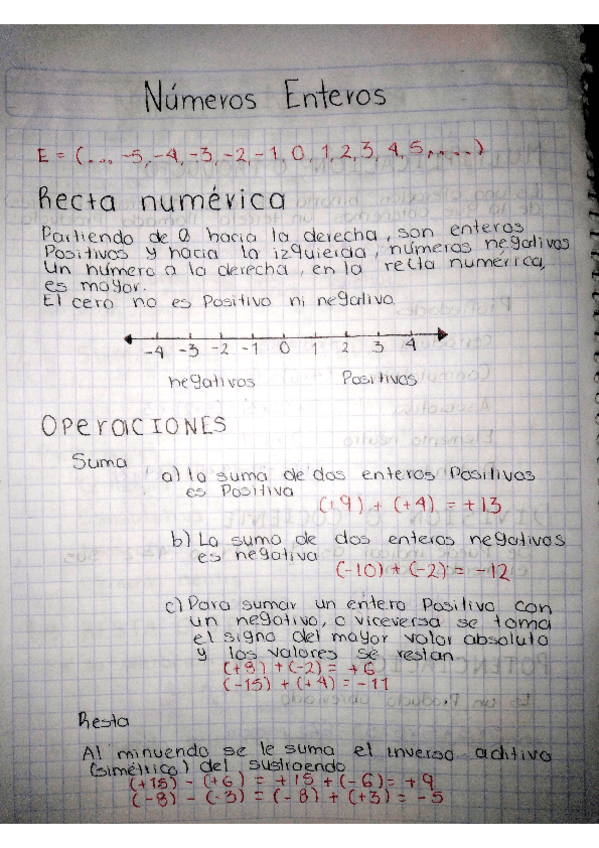 Números Enteros
E = (... -5, -4, -3, -2 -1, 0, 1, 2, 3, 4, 5, ....)
Recta numérica
Partiendo de 0 hacia la derecha, son enteros
Positivos y hacia la izquierda, números negativos
Un número a la derecha, en la recta numérica,
es mayor.
El cero no es Positivo ni negativo.
-4 -3 -2 -1 0 1 2 3 4
negativos Positivos
OPERACIONES
Suma
a) la suma de dos enteros Positivos
es Positiva
(+9) + (+4) = +13
b) La suma de dos enteros negativos
es negativa
(-10) + (-2) = -12
c) Para sumar un entero Positivo con
un negativo, o viceversa se toma
el signo del mayor valor absoluto
y los valores se restan
(+8) + (-2) = +6
(-15) + (+4) = -11
Resta
Al minuendo se le suma el inverso aditivo
(simétrico) del sustraendo
(+15) - (+6) = +15 + (-6) = +9
(-8) - (-3) = (-8) + (+3) = -5